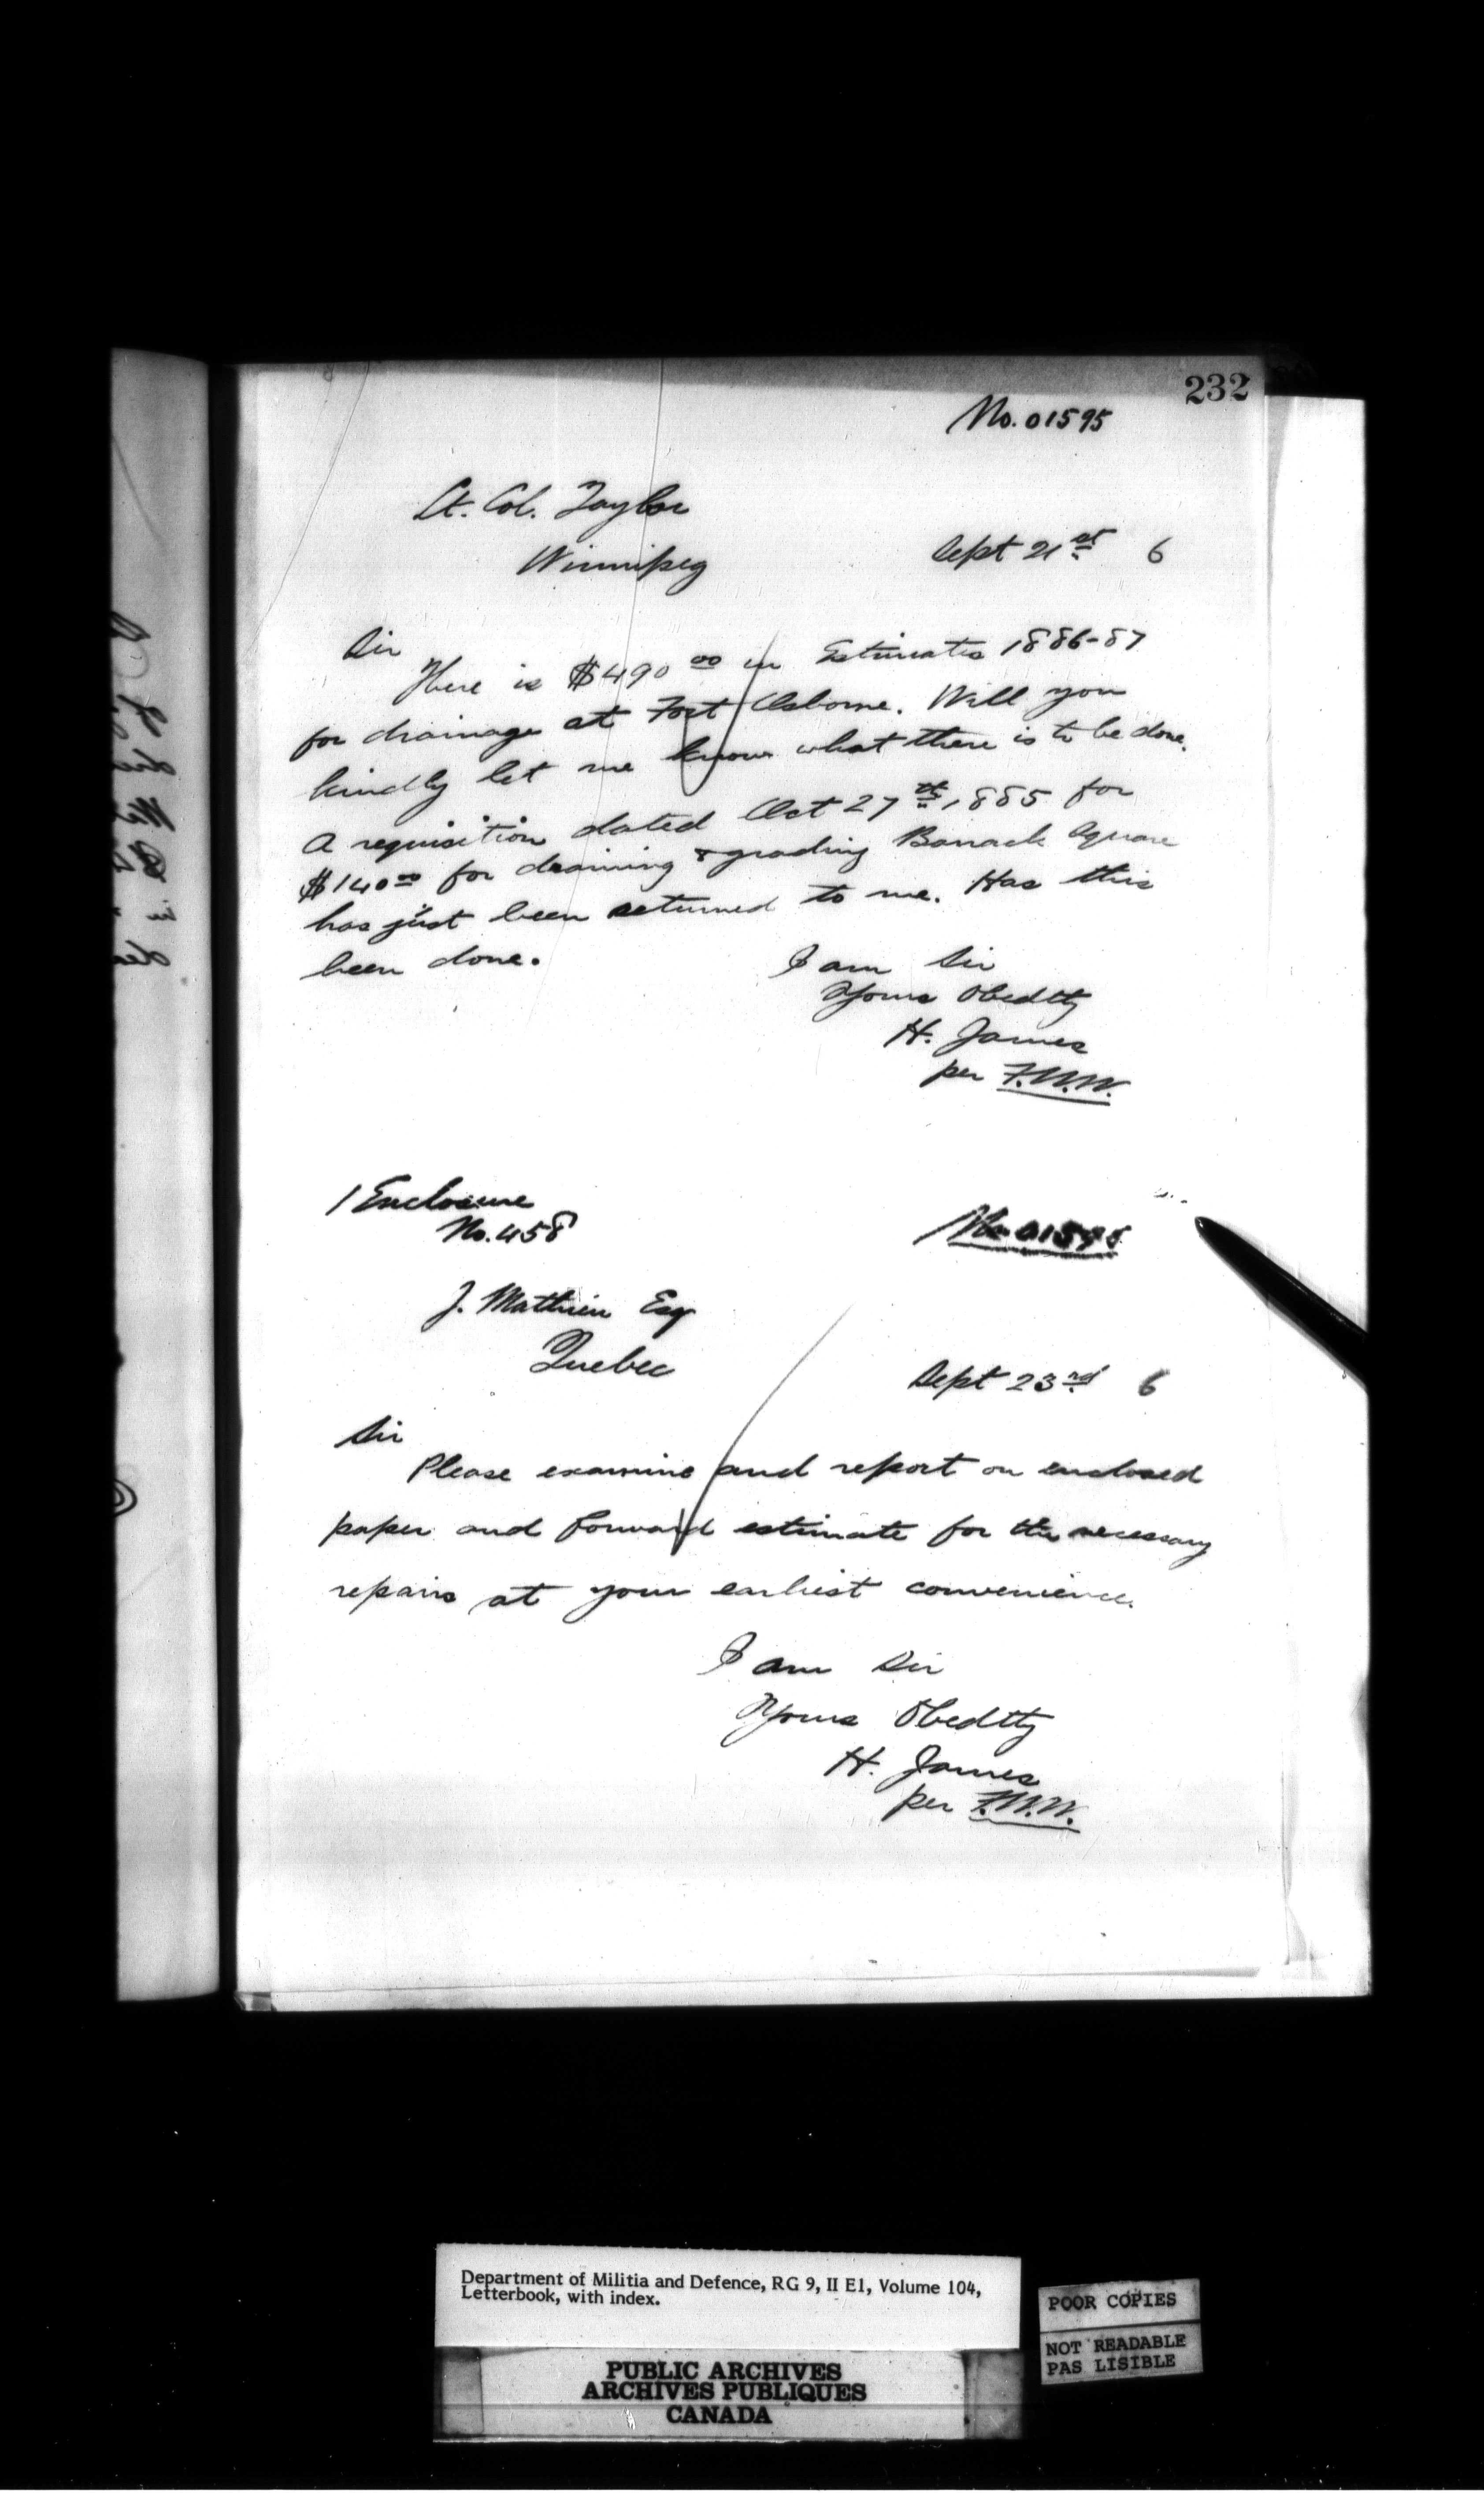 232
No. 01595
Lt. Col. Taylor
Winnipeg
Sept 21st 6
Sir
There is $490 00 in Estimates 1886-87
for drainage at Fort Osborne. Will you
kindly let me know what there is to be done.
A requisition dated Oct 27th 1885 for
$140 00 for draining & grading Barrack Square
has just been returned to me. Has this
been done.
I am Sir
Yours Obedtly
H. James
per F.W.W.
1 Enclosure
No. 458
J. Mathieu Esq
Quebec
Sept 23rd 6
Sir
Please examine and report on enclosed
paper and forward estimate for the necessary
repairs at your earliest convenience.
I am Sir
Yours Obedtly
H. James
per F.W.W.
Department of Militia and Defence, RG 9, II E1, Volume 104,
Letterbook, with index.
POOR COPIES
NOT READABLE
PAS LISIBLE
PUBLIC ARCHIVES
ARCHIVES PUBLIQUES
CANADA